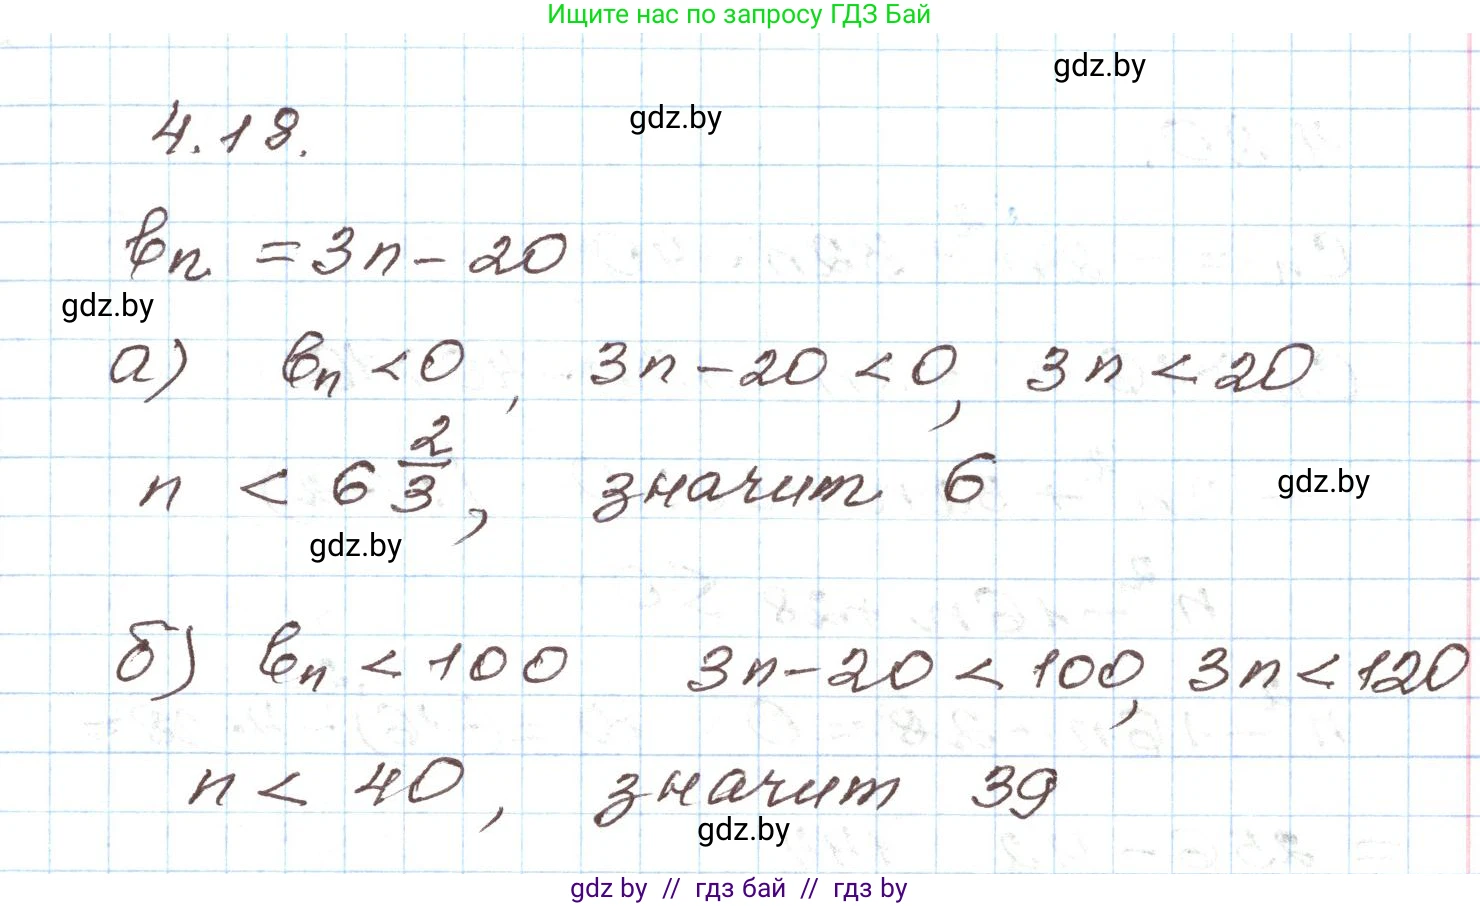 Ищите нас по запросу ГДЗ Бай
gdz.by
4.18.
gdz.by
bn = 3n - 20
gdz.by
а) bn < 0, 3n - 20 < 0, 3n < 20
n < 6 2/3, значит 6
gdz.by
gdz.by
б) bn < 100 3n - 20 < 100, 3n < 120
n < 40, значит 39
gdz.by
gdz by // гдз бай // гдз by